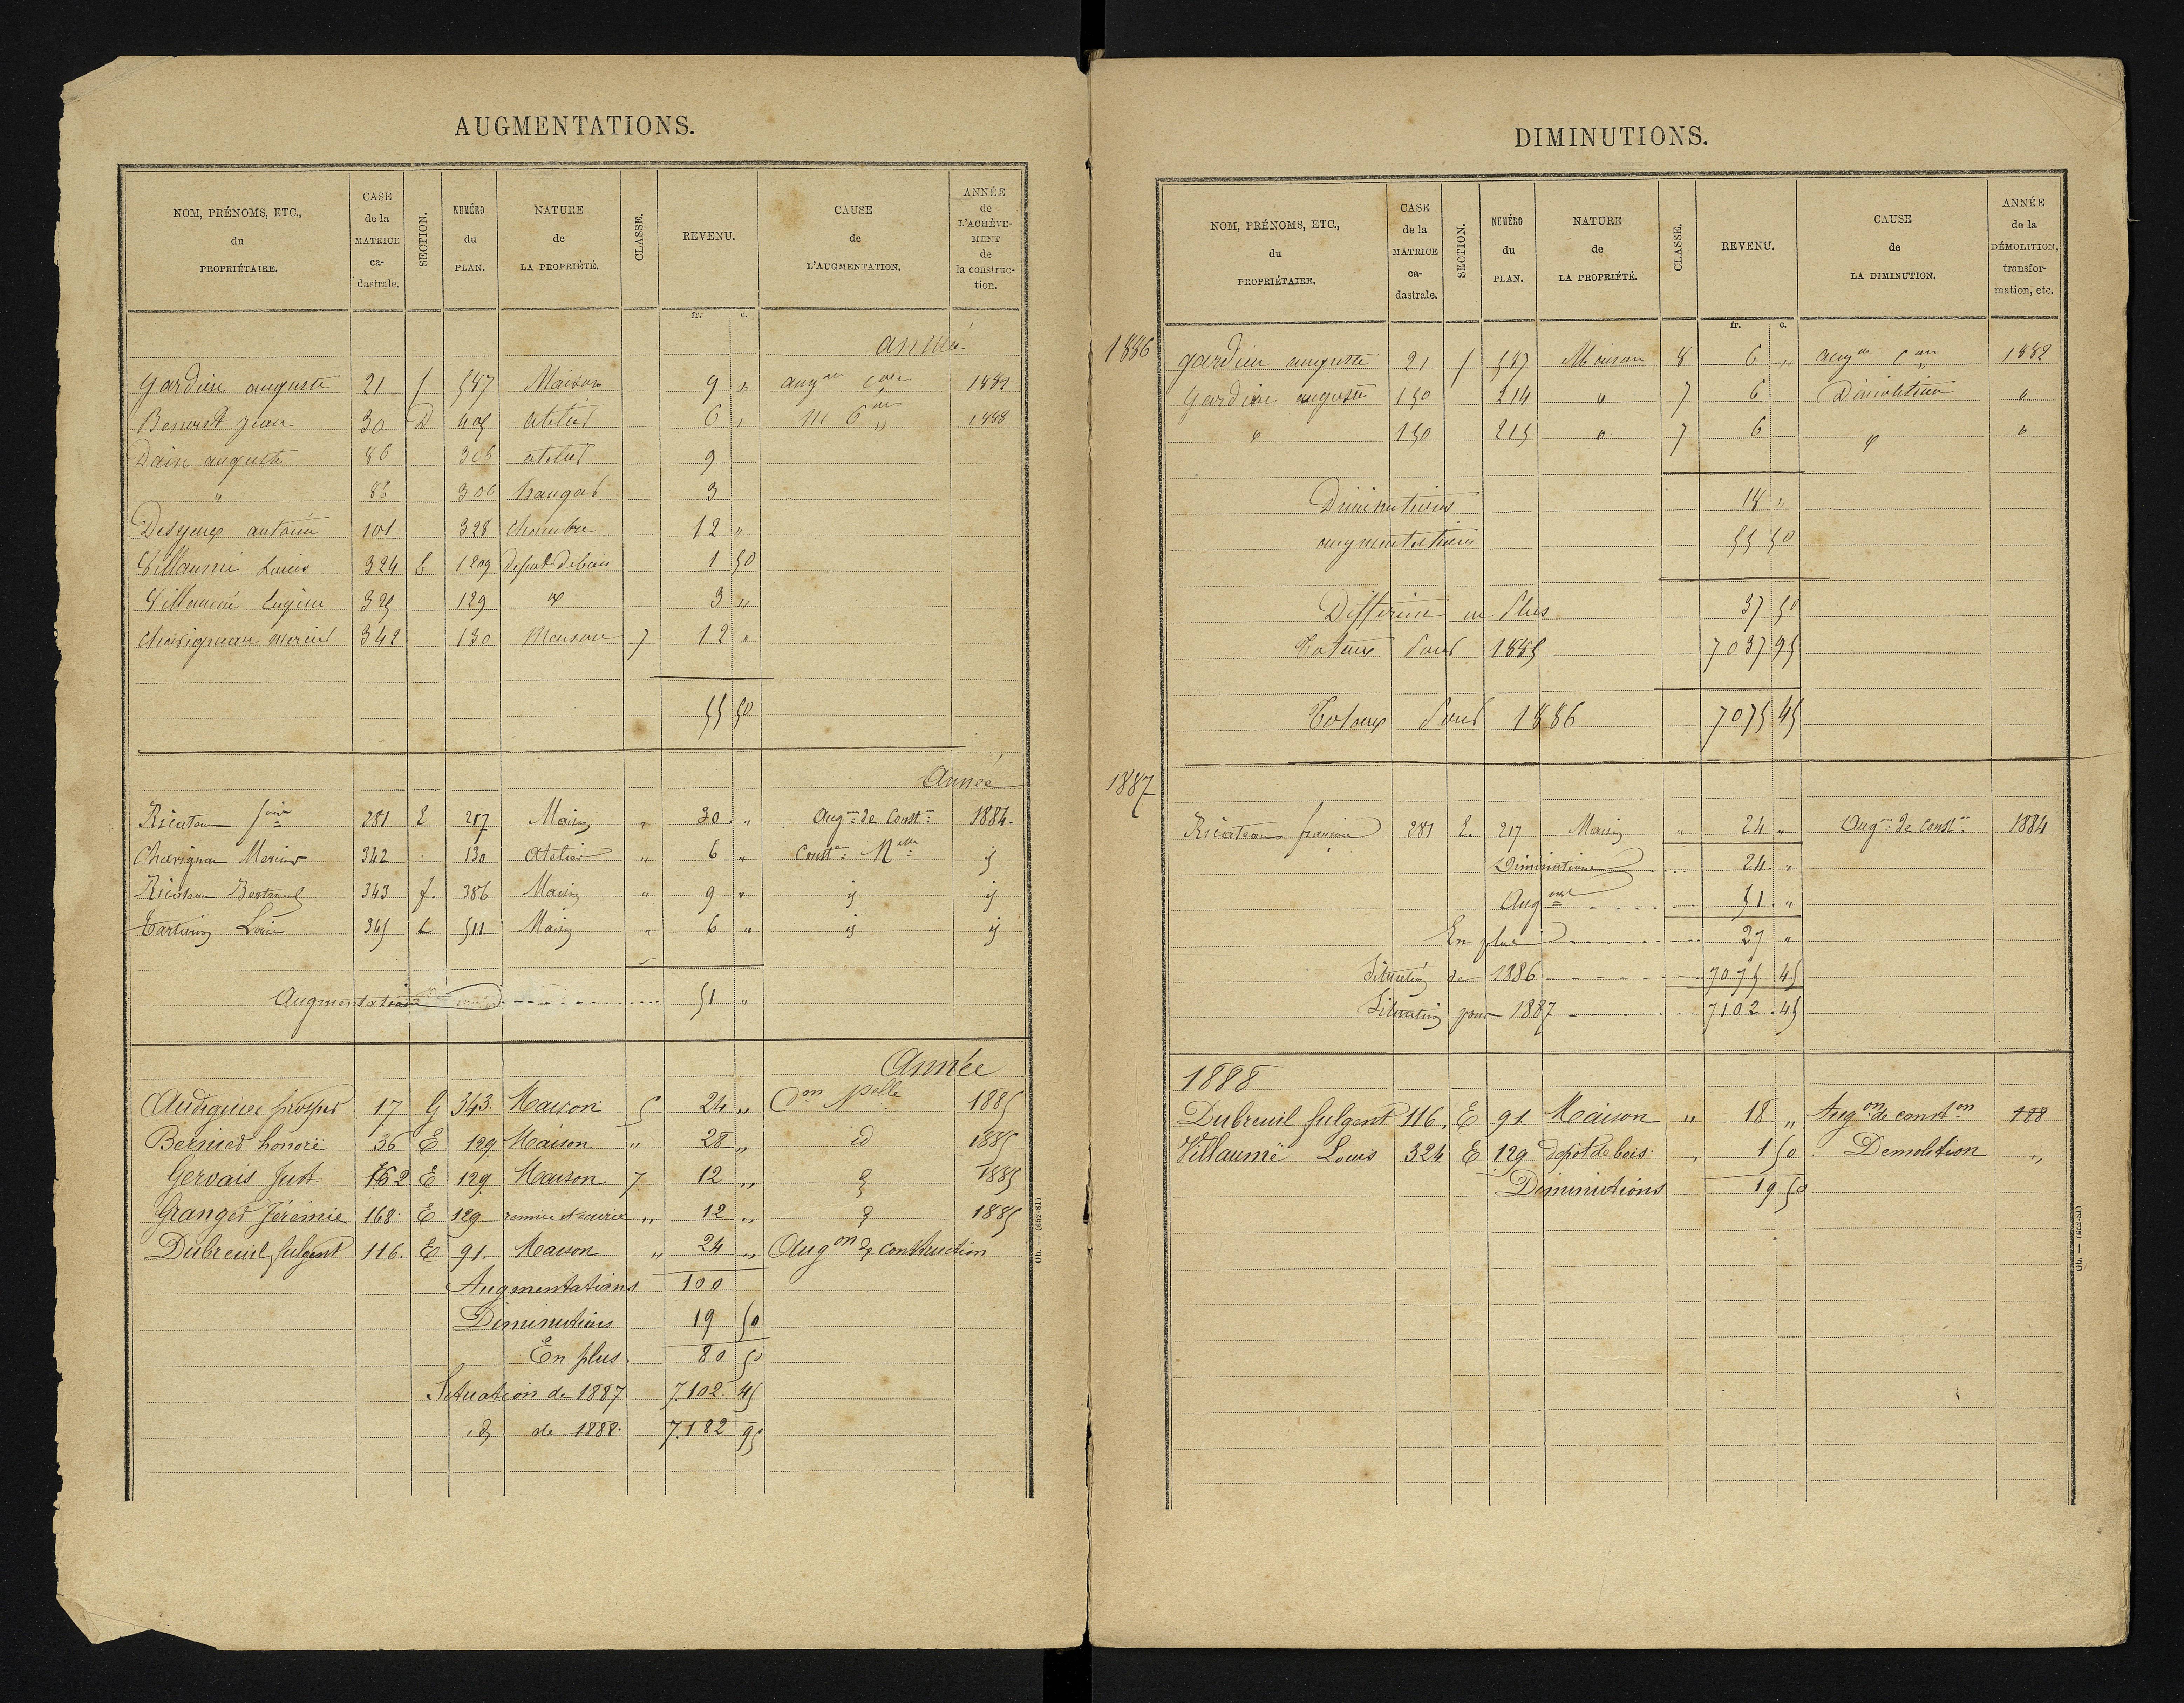 AUGMENTATIONS.
NOM, PRÉNOMS, ETC., du PROPRIÉTAIRE. CASE de la MATRICE ca- dastrale. SECTION. NUMÉRO du PLAN. NATURE de LA PROPRIÉTÉ. CLASSE. REVENU. CAUSE de L'AUGMENTATION. ANNÉE de L'ACHÈVE- MENT de la construc- tion.
fr. c.
année
Gardien auguste 21 f 587 Maison 9 " augon con 1882
Benoist jean 30 D 405 atelier 6 " 1883
Dain auguste 86 306 atelier 9
" 86 306 hangar 3
antoine 101 328 chambre 12 "
Villaumé Louis 324 E 129 depot de bois 1 50
Villaumé Eugène 325 129 3 "
Chavignau 342 130 Maison 7 12 "
55 50
Année
Ricateau 281 E 217 Maison " 30 " Augon de Conston 1884.
Chavignau 342 130 Atelier " 6 " Conston Nelle id
Ricateau Bertrand 343 f. 386 Maison " 9 " id id
Louis 345 C 511 Maison " 6 " id id
Augmentations 51 "
Année
Audiguier prosper 17 G 343. Maison 5 24 " Con Nelle 1885
Bernier honoré 36 E 129 Maison " 28 " id 1885
Gervais Just 162 E 129 Maison 7 12 " 1885
Granger Jérémie 168. E 129 remise et ecurie " 12 " 1885
Dubreuil fulgent 116. E 91 Maison " 24 " Augon de construction
Augmentations 100
Diminutions 19 50
En plus. 80 50
Situation de 1887 7.102. 45
id de 1888. 7.182 95
Ob. — (652-81)
DIMINUTIONS.
NOM, PRÉNOMS, ETC., du PROPRIÉTAIRE. CASE de la MATRICE ca- dastrale. SECTION. NUMÉRO du PLAN. NATURE de LA PROPRIÉTÉ. CLASSE. REVENU. CAUSE de LA DIMINUTION. ANNÉE de la DÉMOLITION, transfor- mation, etc.
fr. c.
1886
gardien auguste 21 f 587 Maison 8 6 " augon con 1882
Gardien auguste 150 214 " 7 6 Démolition "
" 150 215 " 7 6 "
Diminutions 18 "
augmentations 55 50
Différence en Plus 37 50
Totaux pour 1885 7037 95
Totaux pour 1886 7075 45
1887
Ricateau 281 E. 217 Maison " 24 " Augon de Conston 1884
Diminutions 24 "
Augons 51 "
En plus 27 "
Situation de 1886 7075 45
Situation pour 1887 7102. 45
1888
Dubreuil fulgent 116. E 91 Maison " 18 " Augon de conston 188
Villaumé Louis 324 E 129 dépôt de bois. " 1 50 Demolition "
Diminutions 19 50
Ob. — (652-81)